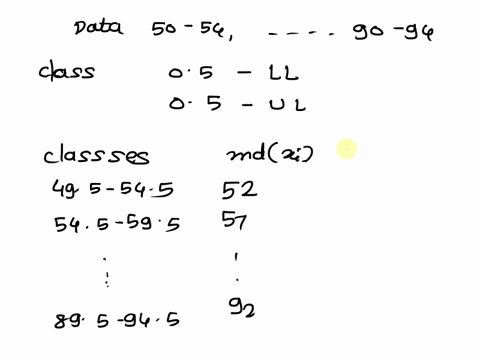 Data 50-54, ----. 90-94
class 0.5 - LL
0.5 - UL
classses md(xi)
49.5-54.5 52
54.5-59.5 57
89.5-94.5 92